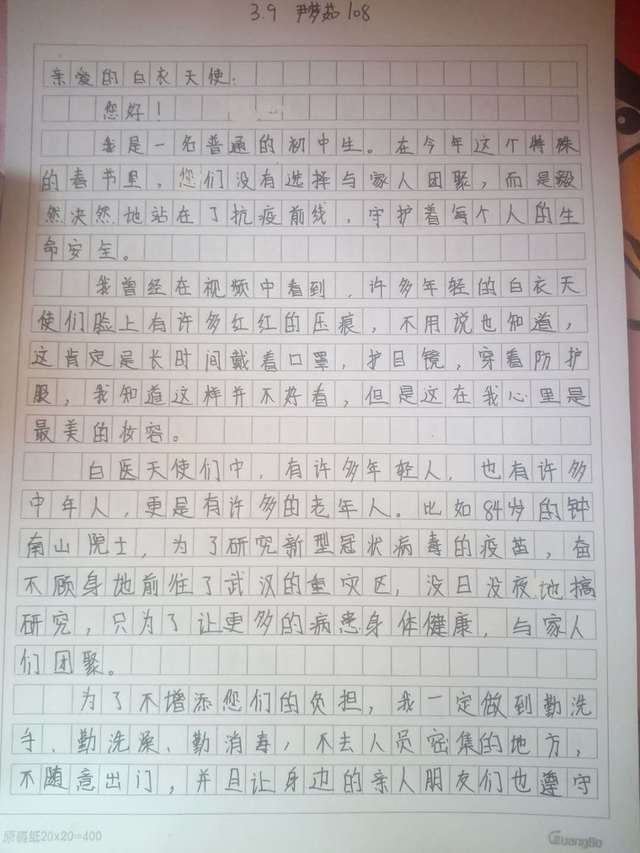 3.9 尹梦茹 108
亲爱的白衣天使：
您好！
我是一名普通的初中生。在今年这个特殊
的春节里，您们没有选择与家人团聚，而是毅
然决然地站在了抗疫前线，守护着每个人的生
命安全。
我曾经在视频中看到，许多年轻的白衣天
使们脸上有许多红红的压痕，不用说也知道，
这肯定是长时间戴着口罩，护目镜，穿着防护
服，我知道这样并不好看，但是这在我心里是
最美的妆容。
白医天使们中，有许多年轻人，也有许多
中年人，更是有许多的老年人。比如84岁的钟
南山院士，为了研究新型冠状病毒的疫苗，奋
不顾身地前往了武汉的重灾区，没日没夜地搞
研究，只为了让更多的病患身体健康，与家人
们团聚。
为了不增添您们的负担，我一定做到勤洗
手、勤洗澡、勤消毒，不去人员密集的地方，
不随意出门，并且让身边的亲人朋友们也遵守
原稿纸20x20=400
GuangBo